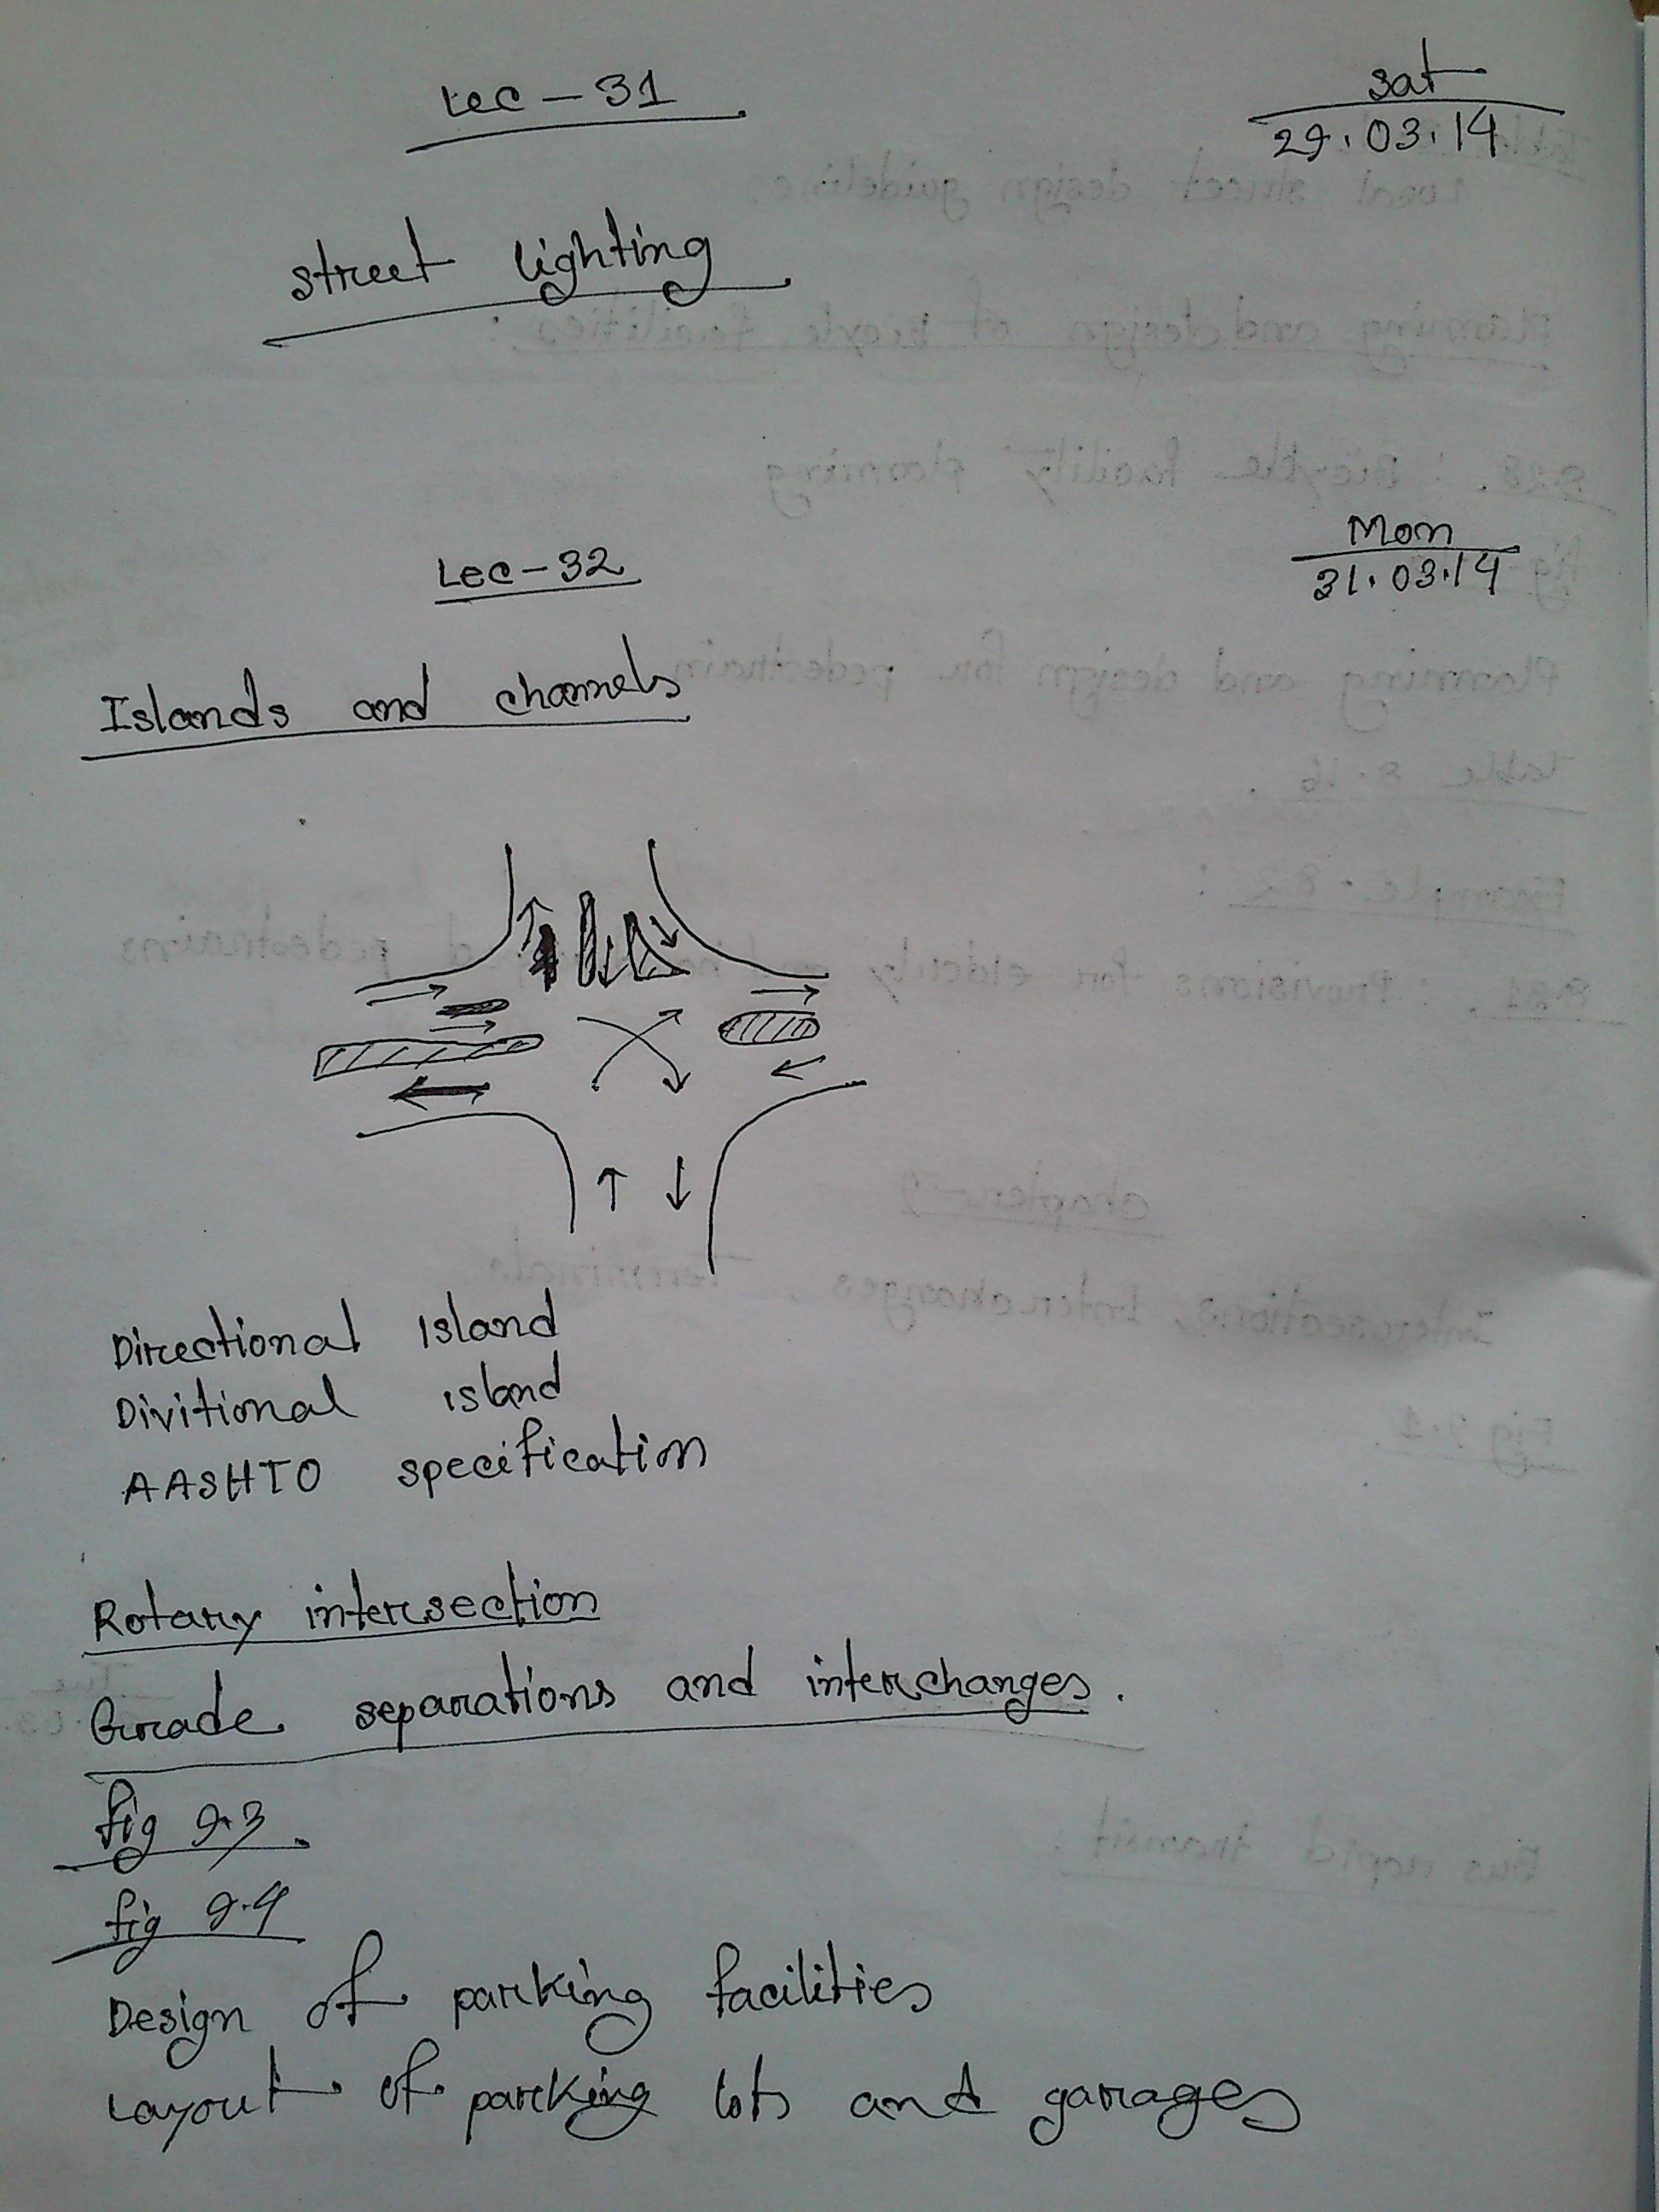 Lec - 31
Sat
29.03.14
street lighting
Lec-32
Mon
31.03.14
Islands and channels
Directional Island
Divitional island
AASHTO specification
Rotary intersection
Grade separations and interchanges.
fig 9.3
fig 9.4
Design of parking facilities
Layout of parking lots and garages